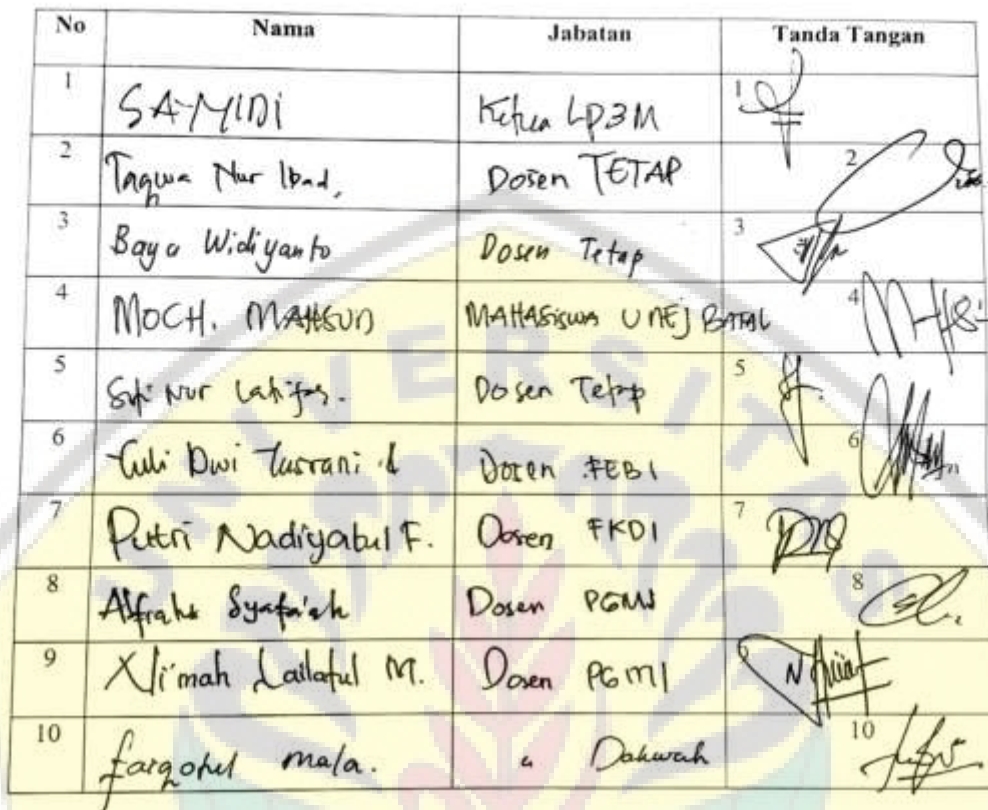 No Nama Jabatan Tanda Tangan
1 SAMIDI Ketua LP3M 1
2 Taqwa Nur Ibad, Dosen TETAP 2
3 Bayu Widiyanto Dosen Tetap 3
4 MOCH. MAHSUN MAHASISWA UNEJ BATAL 4
5 Siti Nur Latifas. Dosen Tetap 5
6 Dwi Dosen FEBI 6
7 Putri Nadiyatul F. Dosen FKDI 7
8 Syafa'ah Dosen PGMI 8
9 Ni'mah Lailatul M. Dosen PGMI 9
10 mala. " Dakwah 10
UNIVERSITAS